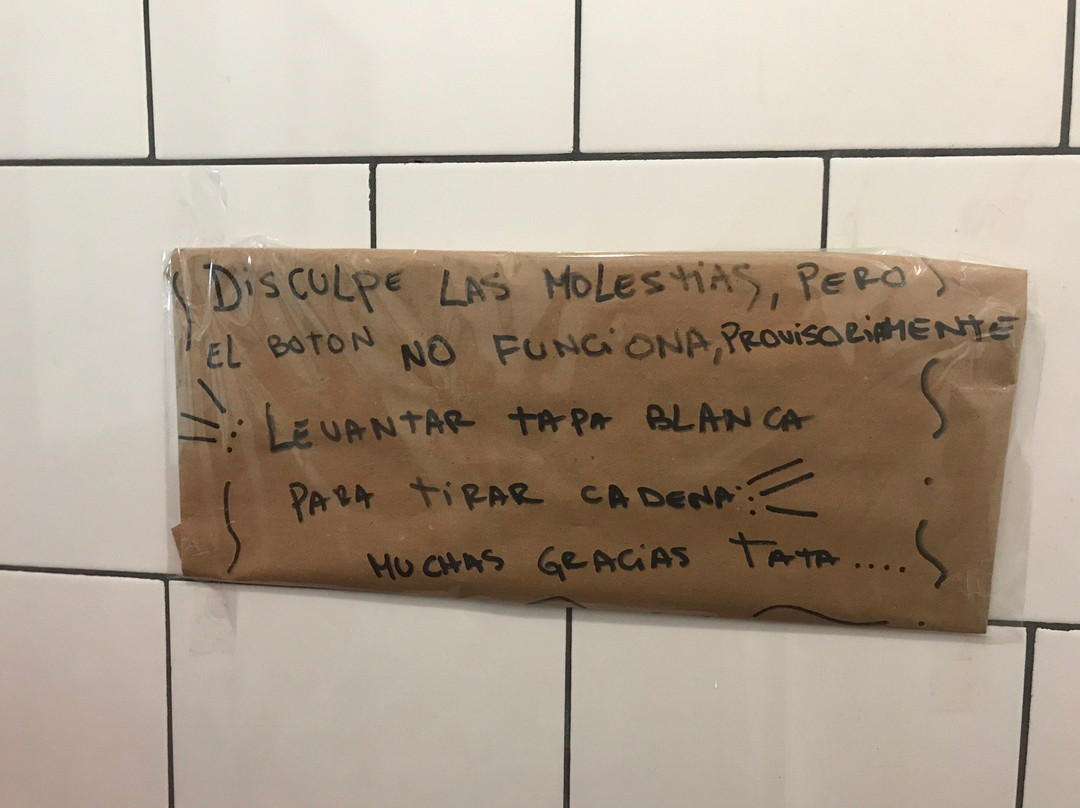 DISCULPE LAS MOLESTIAS, PERO
EL BOTON NO FUNCIONA, PROVISORIAMENTE
LEVANTAR TAPA BLANCA
PARA TIRAR CADENA
MUCHAS GRACIAS TATA....